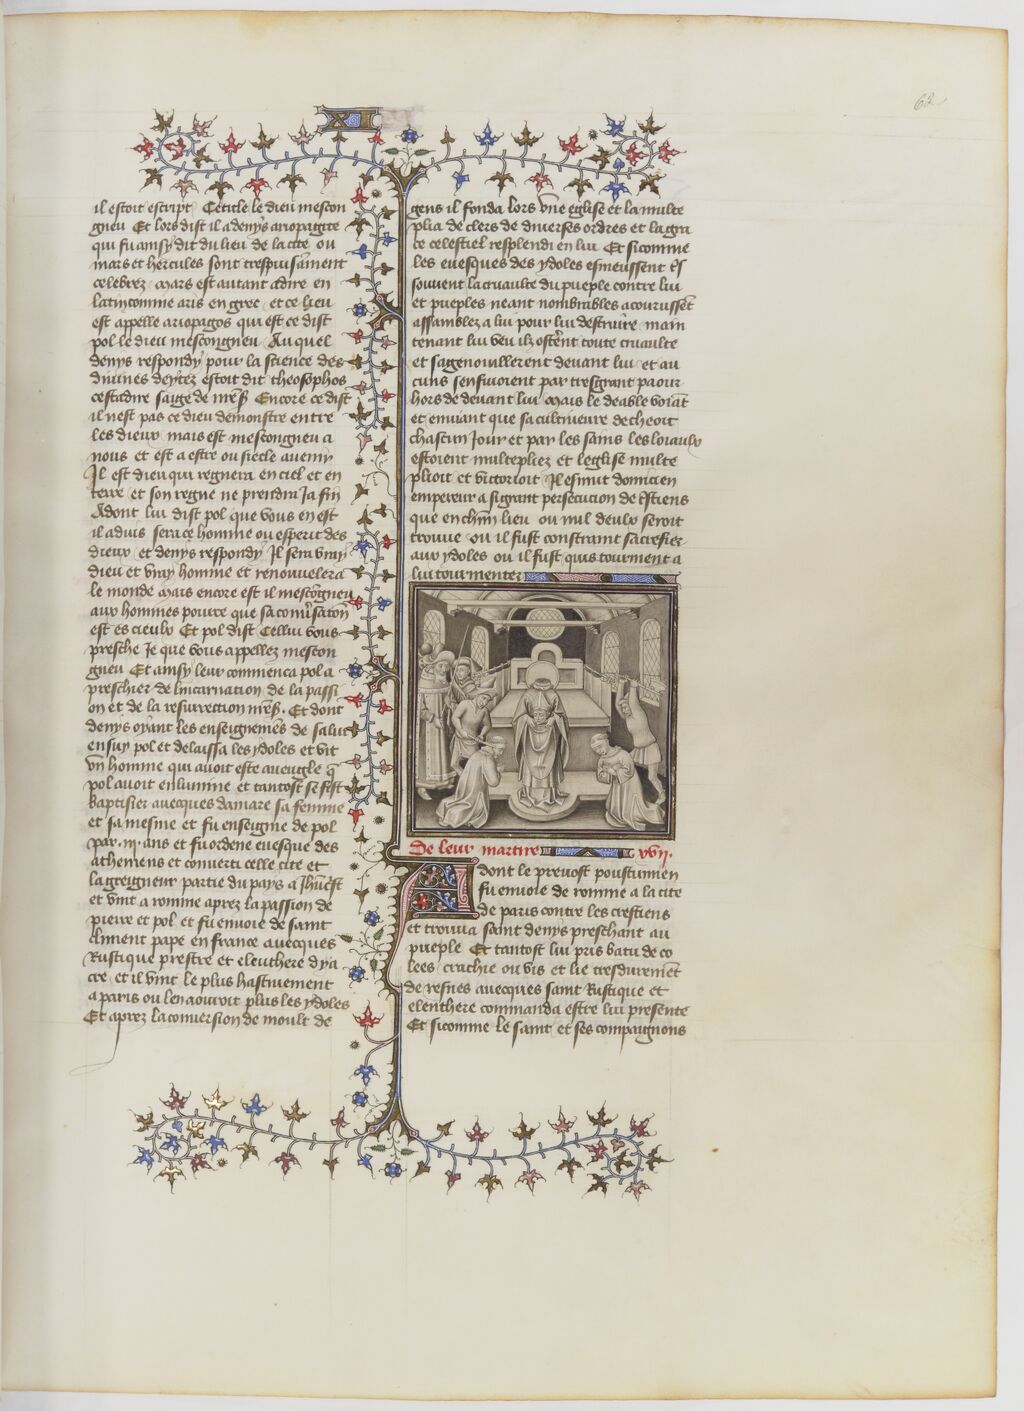 62
XI
il estoit escript Cest icle le dieu mescon
gneu Et lors dist il a denys ariopagite
qui fu ainsy dit du lieu de la cite ou
mars et hercules sont trespuissament
celebrez Mars est autant adire en
latin comme aris en grec et ce lieu
est appelle ariopagos qui est ce dist
pol le dieu mescongneu Auquel
denys respondy pour la science des
diuines deytez estoit dit theosophos
cestadire saige de mess Encore ce dist
il nest pas ce dieu demonstre entre
les dieux mais est mescongneu a
nous et est a estre ou siecle auenir
Il est dieu qui regnera en ciel et en
terre et son regne ne prendra Ja fin
Adont lui dist pol que vous en est
il aduis sera ce homme ou esperit des
dieux et denys respondy Il sera vray
dieu et vray homme et renouuelera
le monde Mais encore est il mescongneu
aux hommes pource que sa conuersaton
est es cieulx Et pol dist Cellui vous
presche Je que vous appellez mescon
gneu Et ainsy leur commenca pol a
preschier de lincarnation de la passi
on et de la resurrection Et dont
denys oyant les enseignemens de salut
ensuy pol et delaissa les ydoles et vit
vn homme qui auoit este aueugle q
pol auoit enlumine et tantost se fist
baptisier auecques damare sa femme
et sa mesme et fu enseigne de pol
par .iij. ans et fu ordene euesque des
atheniens et conuerti celle cite et
la greigneur partie du pays a Jhucrist
et vint a romme aprez la passion de
pierre et pol et fu enuoie de saint
climent pape en france auecques
Rustique prestre et eleuthere dya
cre et il vint le plus hastiuement
a paris ou len aouroit plus les ydoles
Et aprez la conuersion de moult de
gens il fonda lors vne eglise et la multe
plia de clers de diuerses ordres et la gra
ce celestiel resplendi en lui Et sicomme
les euesques des ydoles esmeussent
souuent la cruaulte du pueple contre lui
et pueples neant nombrables acourussent
assamblez a lui pour lui destruire main
tenant lui veu ilz ostent toute cruaulte
et sagenouillerent deuant lui et au
cuns senfuioient par tresgrant paour
hors de deuant lui Mais le deable voiat
et enuiant que sa cultiueure decheoit
chascun Jour et par les sains les loiaulx
estoient multepliez et leglise multe
plioit et victorioit Il esmut domicien
empereur a si grant persecucion de xpistiens
que en chun lieu ou nul deulx seroit
trouue ou il fust constraint sacrefier
aux ydoles ou il fust quis tourment a
lui tourmenter
De leur martire xvij.
Adont le preuost pouscumien
fu enuoie de romme a la cite
de paris contre les crestiens
et trouua saint denys preschant au
pueple Et tantost lui pris batu de co
lees crachie ou vis et lie tresdurement
de resnes auecques saint Rustique et
elenthere commanda estre lui presente
Et sicomme le saint et ses compaignons